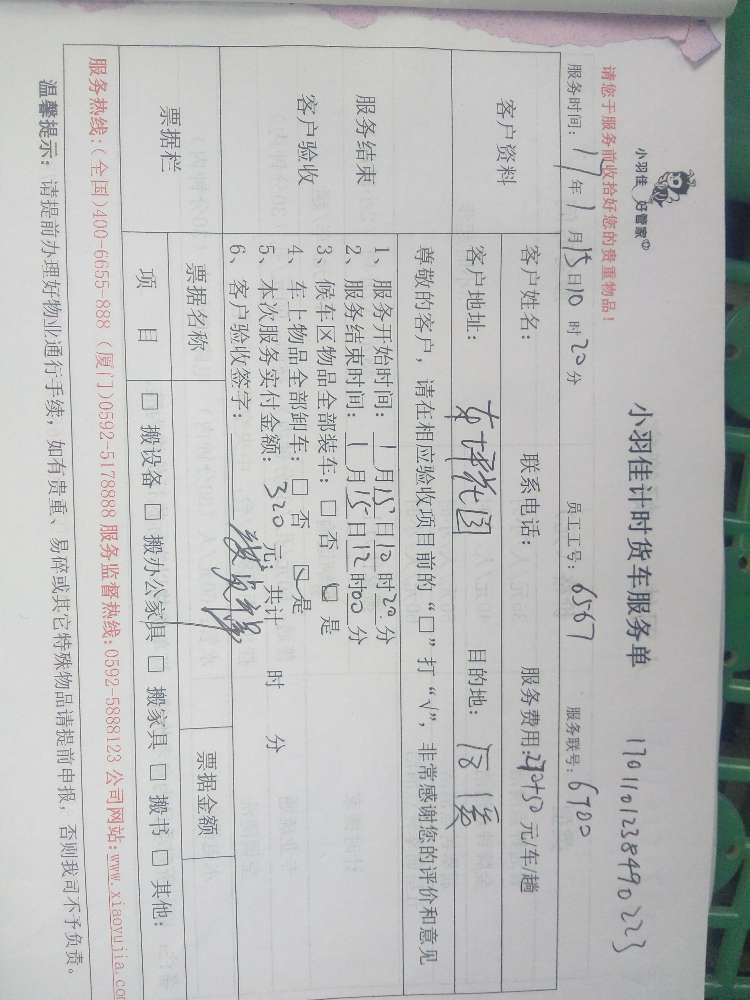 小羽佳 好管家
小羽佳计时货车服务单 170110123849 0223
请您于服务前收拾好您的贵重物品！
服务时间：17年1月15日10时20分 员工工号：6567 服务联号：6700
客户资料
客户姓名： 联系电话： 服务费用：270+50元/车/趟
客户地址： 花园 目的地：
服务结束
客户验收
尊敬的客户，请在相应验收项目前的“□”打“√”，非常感谢您的评价和意见
1、服务开始时间：1月15日10时20分
2、服务结束时间：1月15日12时00分
3、候车区物品全部装车：□ 否 □ 是
4、车上物品全部卸车：□ 否 □ 是
5、本次服务实付金额：320元；共计 时 分
6、客户验收签字：
票据栏 票据名称 票据金额
项目 □ 搬设备 □ 搬办公家具 □ 搬家具 □ 搬书 □ 其他：
服务热线：(全国)400-6655-888 (厦门)0592-5178888 服务监督热线：0592-5888123 公司网站：www.xiaoyujia.co
温馨提示：请提前办理好物业通行手续，如有贵重、易碎或其它特殊物品请提前申报，否则我司不予负责。